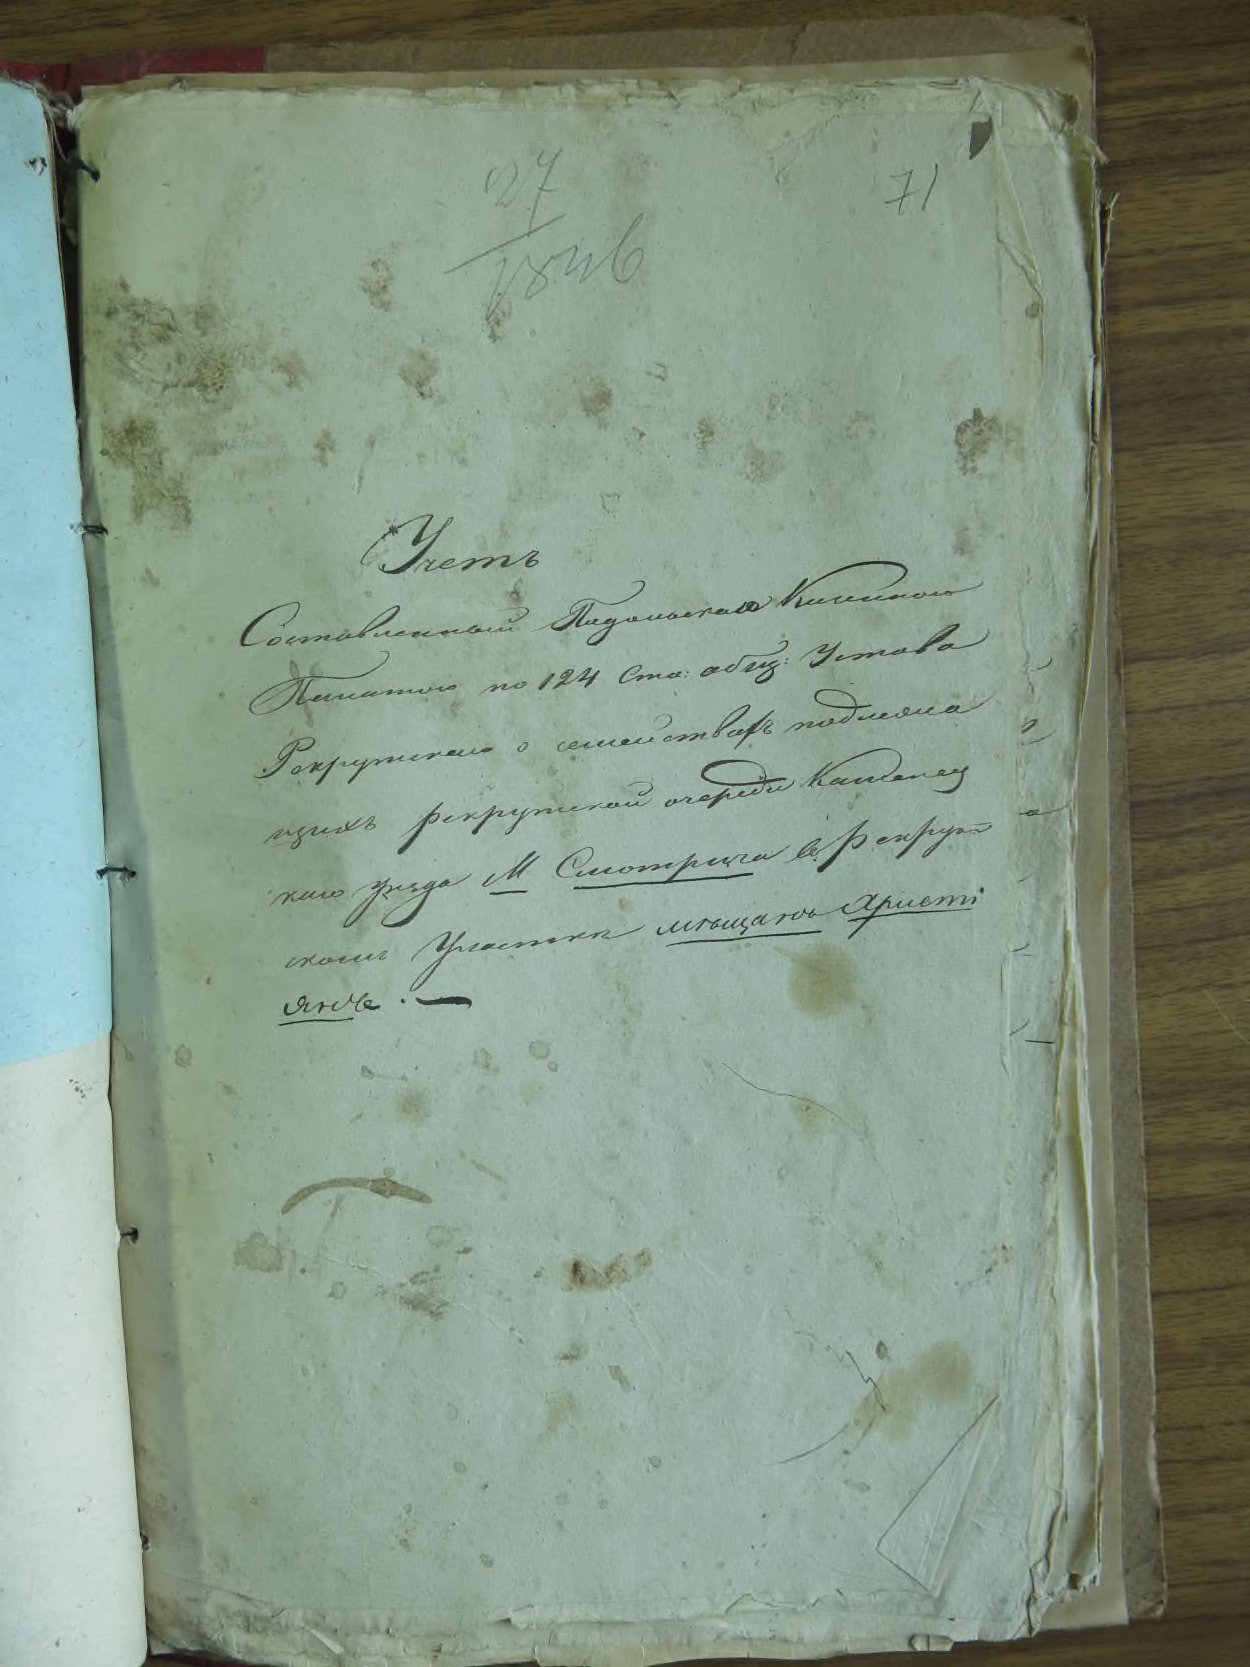 27
71
1846
Учетъ
Составленный Подольскою Казенною
Палатою по 124 Ста: общ: Устава
Рекрутскаго о семействахъ подлежа
щихъ рекрутской очереди Каменец
каго уезда М Смотрича в Рекрут
скомъ Участкѣ мѣщановъ Христі
янъ